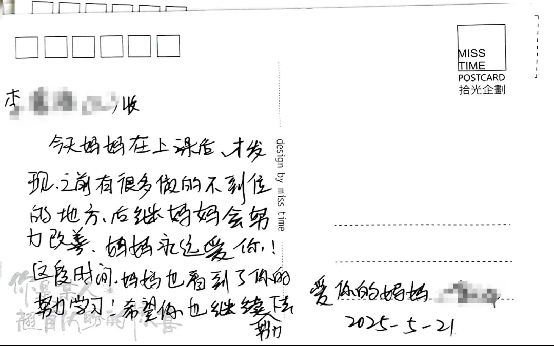 MISS
TIME
POSTCARD
拾光企劃
李
收
今天妈妈在上课后、才发
现、之前有很多做的不到位
的地方、后继妈妈会努
力改善、妈妈永远爱你!
这段时间、妈妈也看到了你的
努力学习!希望你也继续
努力
design by miss time
爱你的妈妈
2025-5-21